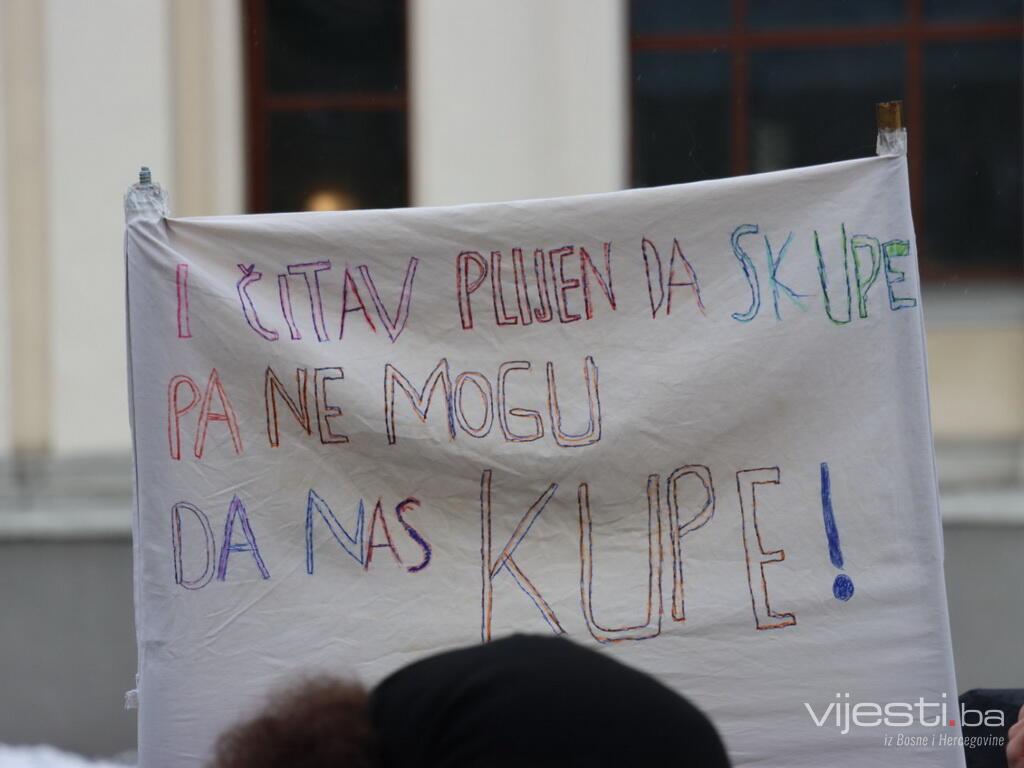 I ČITAV PLIJEN DA SKUPE
PA NE MOGU
DA NAS KUPE!
vijesti.ba
iz Bosne i Hercegovine